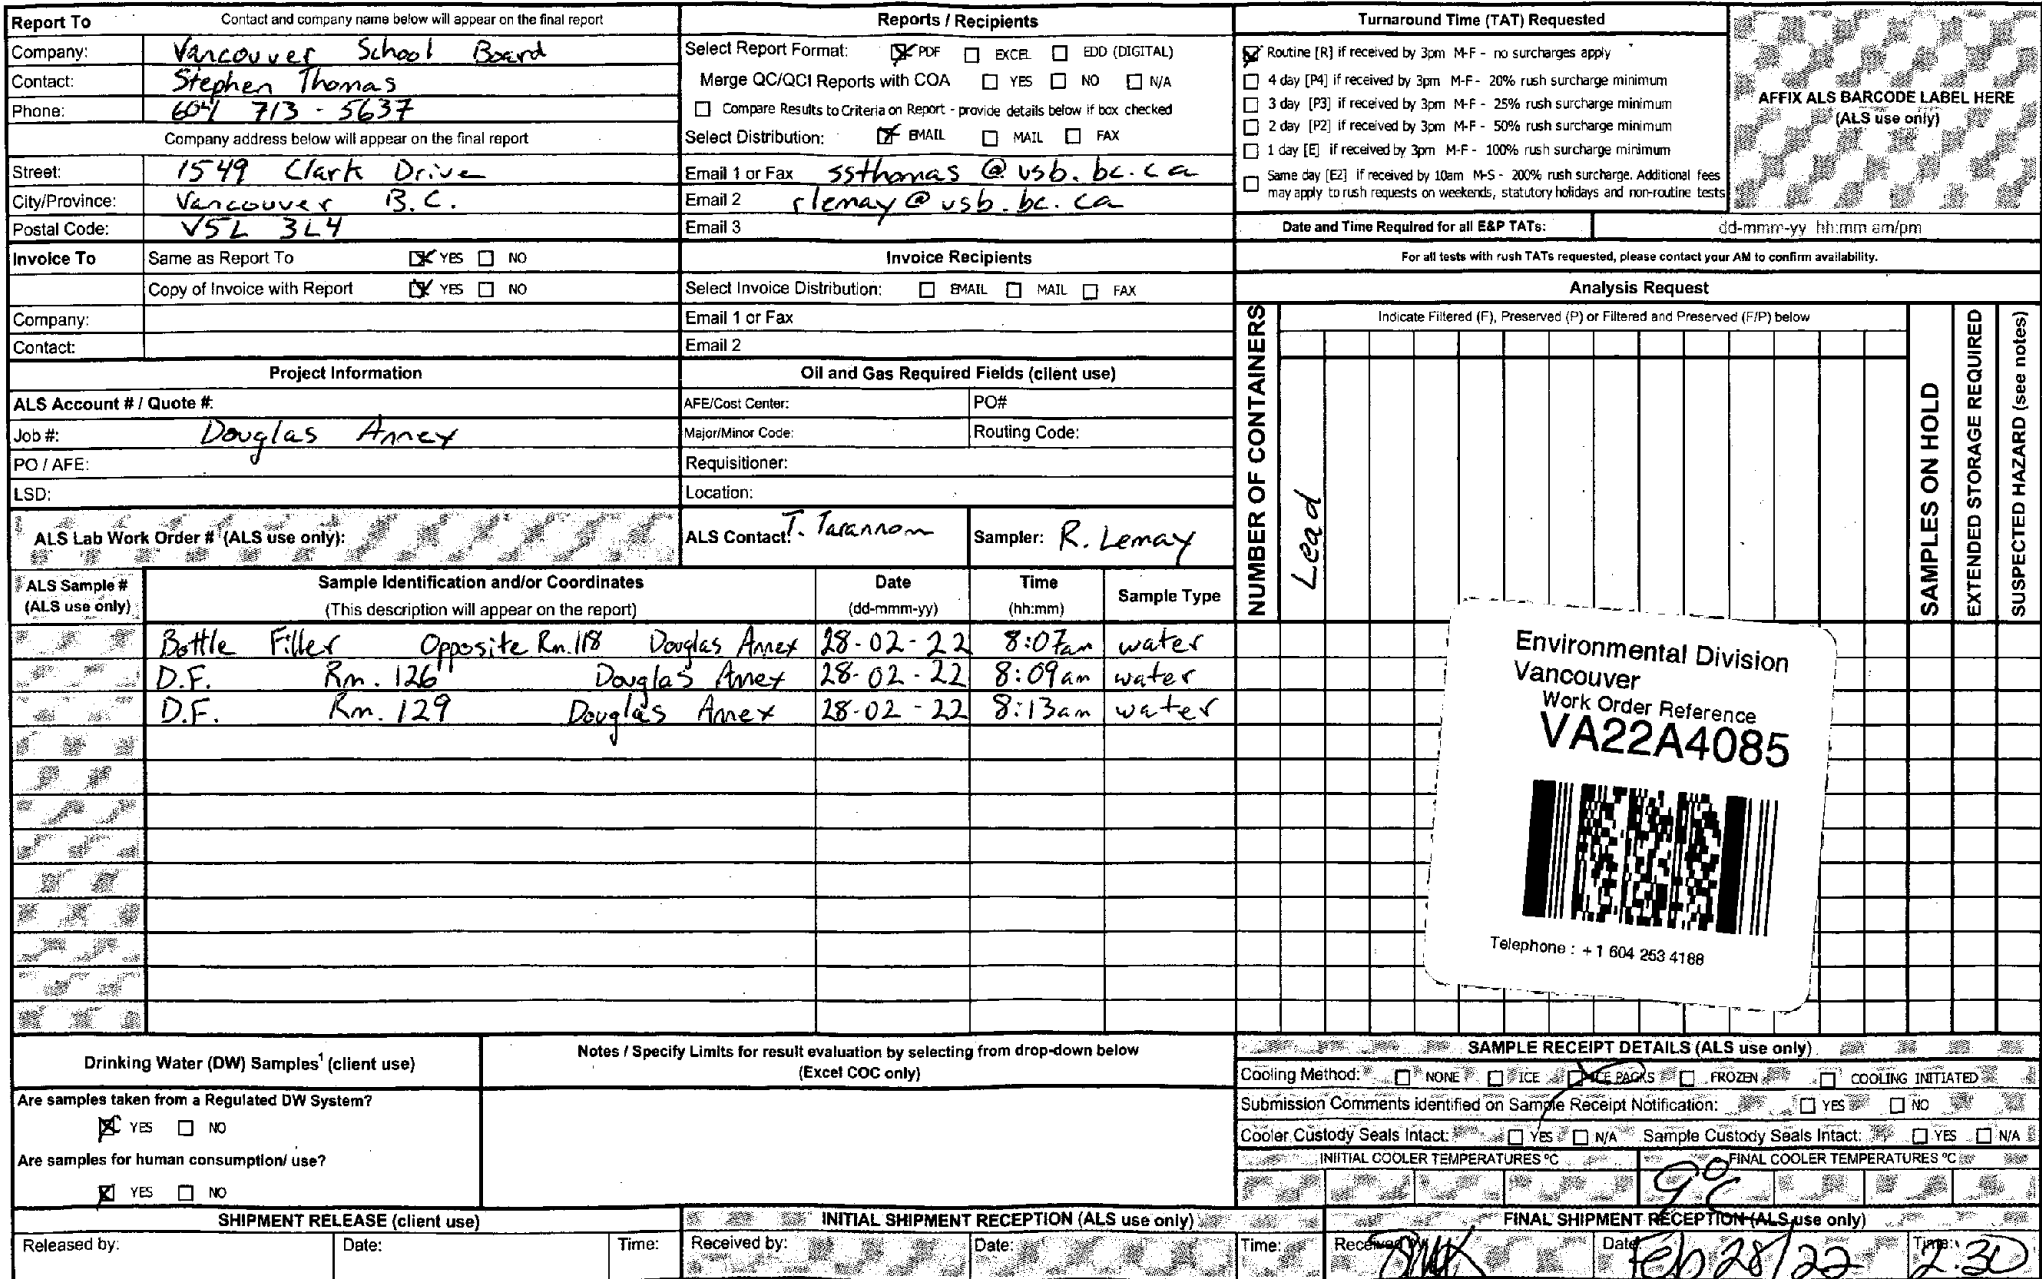 Report To Contact and company name below will appear on the final report
Company: Vancouver School Board
Contact: Stephen Thomas
Phone: 604 713 - 5637
Company address below will appear on the final report
Street: 1549 Clark Drive
City/Province: Vancouver B.C.
Postal Code: V5L 3L4
Invoice To Same as Report To YES NO
Copy of Invoice with Report YES NO
Company:
Contact:
Project Information
ALS Account # / Quote #:
Job #: Douglas Annex
PO / AFE:
LSD:
ALS Lab Work Order # (ALS use only):
Reports / Recipients
Select Report Format: PDF EXCEL EDD (DIGITAL)
Merge QC/QCI Reports with COA YES NO N/A
Compare Results to Criteria on Report - provide details below if box checked
Select Distribution: EMAIL MAIL FAX
Email 1 or Fax ssthomas @ vsb.bc.ca
Email 2 rlemay @ vsb.bc.ca
Email 3
Invoice Recipients
Select Invoice Distribution: EMAIL MAIL FAX
Email 1 or Fax
Email 2
Oil and Gas Required Fields (client use)
AFE/Cost Center: PO#
Major/Minor Code: Routing Code:
Requisitioner:
Location:
ALS Contact: T. Tarannom Sampler: R. Lemay
Turnaround Time (TAT) Requested
Routine [R] if received by 3pm M-F - no surcharges apply
4 day [P4] if received by 3pm M-F - 20% rush surcharge minimum
3 day [P3] if received by 3pm M-F - 25% rush surcharge minimum
2 day [P2] if received by 3pm M-F - 50% rush surcharge minimum
1 day [E] if received by 3pm M-F - 100% rush surcharge minimum
Same day [E2] if received by 10am M-S - 200% rush surcharge. Additional fees
may apply to rush requests on weekends, statutory holidays and non-routine tests
AFFIX ALS BARCODE LABEL HERE
(ALS use only)
Date and Time Required for all E&P TATs: dd-mmm-yy hh:mm am/pm
For all tests with rush TATs requested, please contact your AM to confirm availability.
Analysis Request
NUMBER OF CONTAINERS
Indicate Filtered (F), Preserved (P) or Filtered and Preserved (F/P) below
Lead
SAMPLES ON HOLD
EXTENDED STORAGE REQUIRED
SUSPECTED HAZARD (see notes)
ALS Sample # (ALS use only) Sample Identification and/or Coordinates (This description will appear on the report) Date (dd-mmm-yy) Time (hh:mm) Sample Type
Bottle Filler Opposite Rm.118 Douglas Annex 28-02-22 8:07am water
D.F. Rm. 126 Douglas Annex 28-02-22 8:09am water
D.F. Rm. 129 Douglas Annex 28-02-22 8:13am water
Environmental Division
Vancouver
Work Order Reference
VA22A4085
Telephone : + 1 604 253 4188
Drinking Water (DW) Samples¹ (client use)
Are samples taken from a Regulated DW System?
YES NO
Are samples for human consumption/ use?
YES NO
Notes / Specify Limits for result evaluation by selecting from drop-down below
(Excel COC only)
SAMPLE RECEIPT DETAILS (ALS use only)
Cooling Method: NONE ICE ICE PACKS FROZEN COOLING INITIATED
Submission Comments identified on Sample Receipt Notification: YES NO
Cooler Custody Seals Intact: YES N/A Sample Custody Seals Intact: YES N/A
INIITIAL COOLER TEMPERATURES °C FINAL COOLER TEMPERATURES °C
9°C
SHIPMENT RELEASE (client use) INITIAL SHIPMENT RECEPTION (ALS use only) FINAL SHIPMENT RECEPTION (ALS use only)
Released by: Date: Time: Received by: Date: Time: Received by: Date: Feb 28/22 Time: 2:30